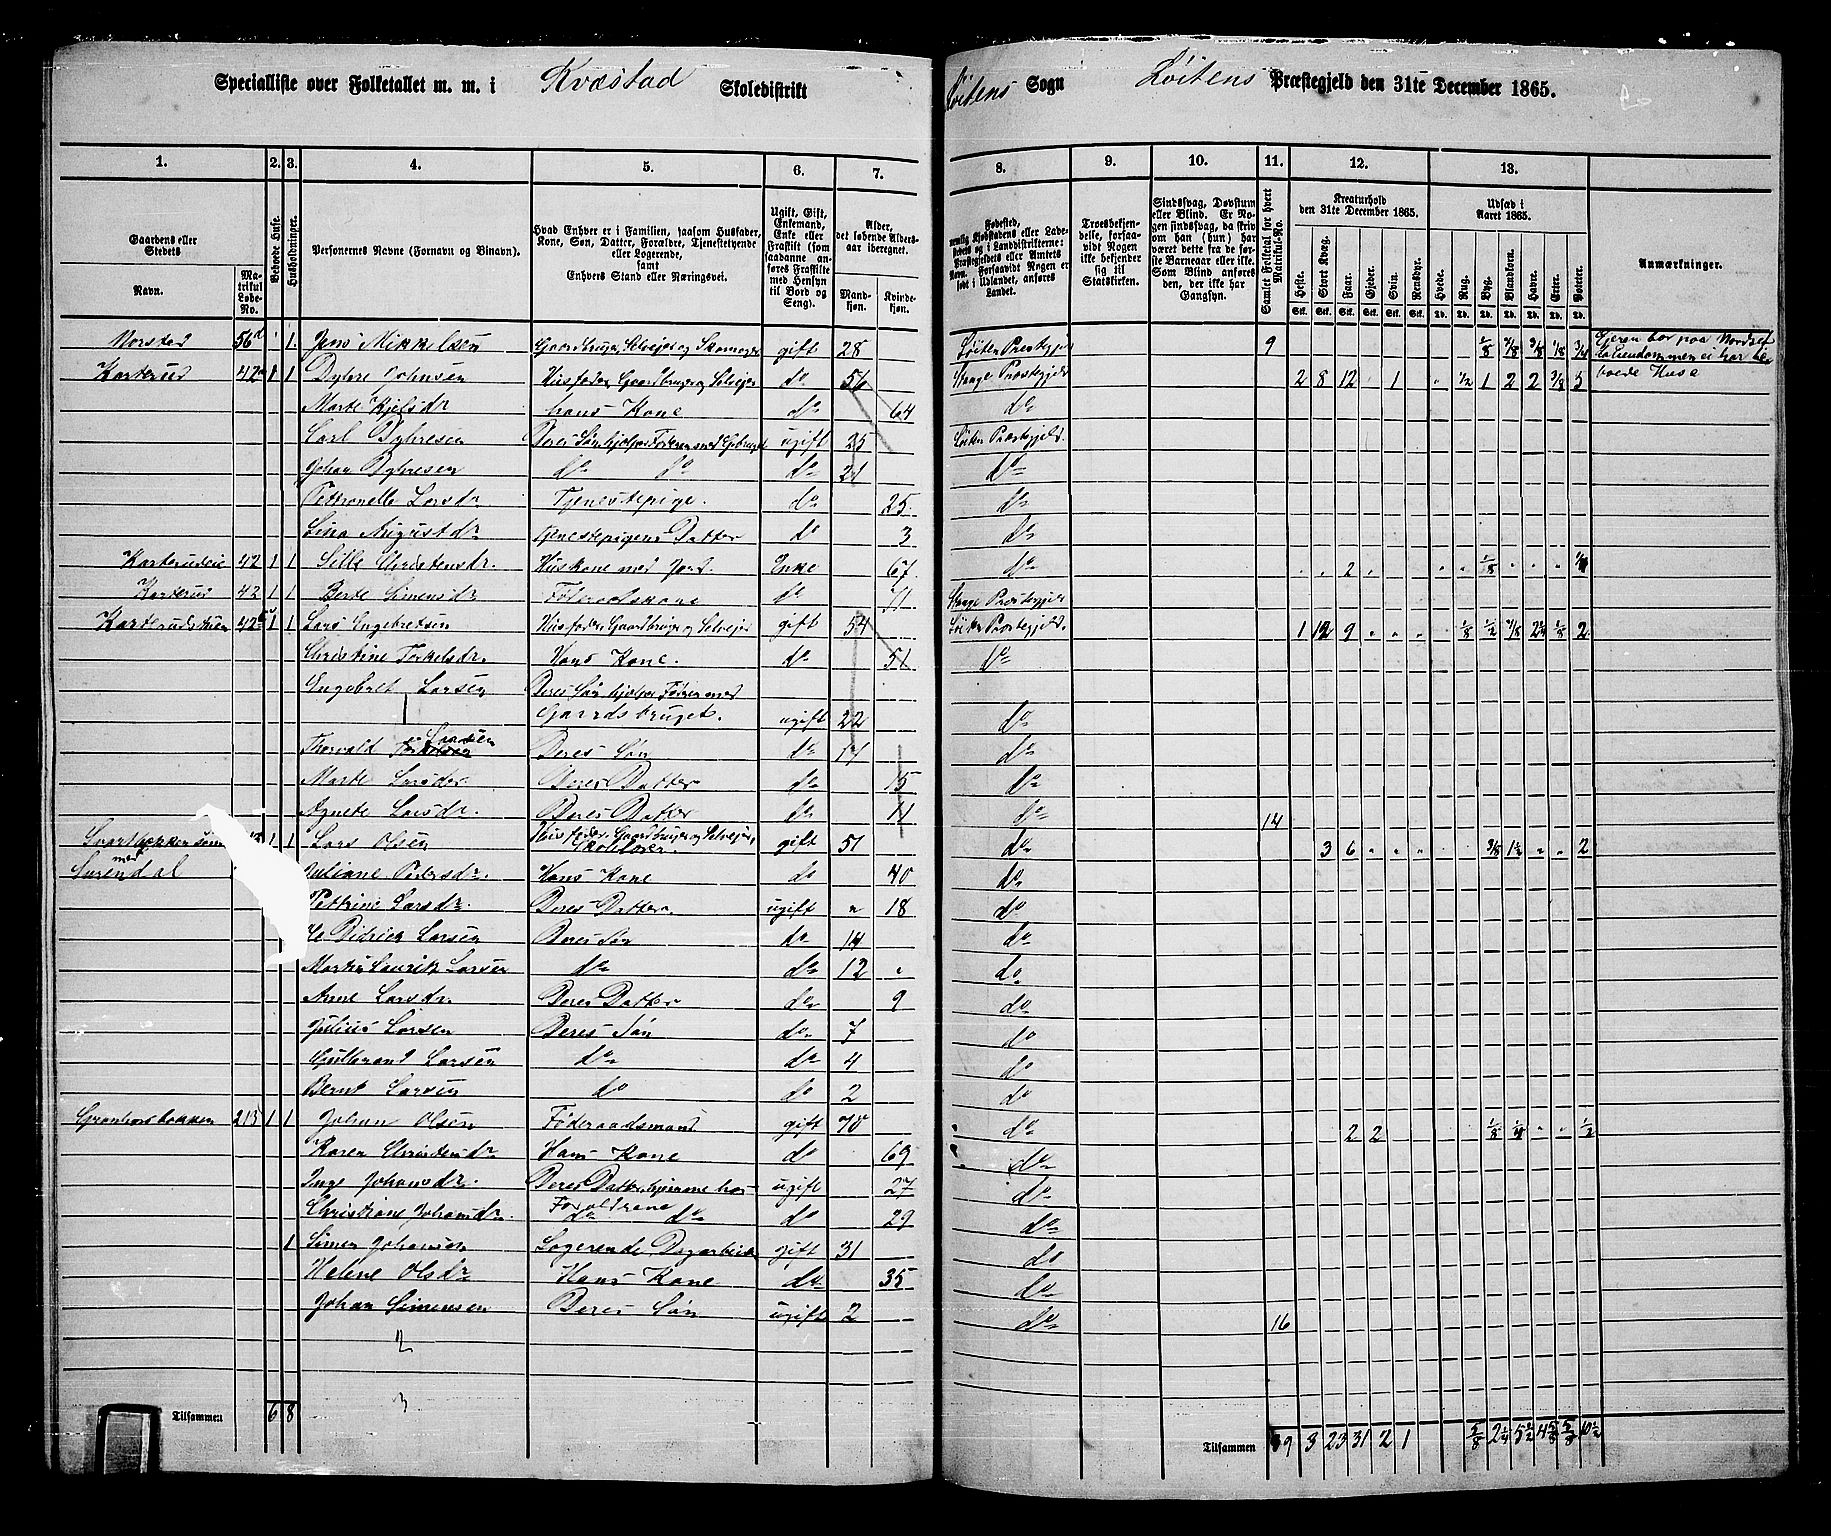 Specialliste over Folketallet m. m. i Kvæstad Skoledistrikt Løitens Sogn Løitens Præstegjeld den 31te December 1865.
1. 2. 3. 4. 5. 6. 7. 8. 9. 10. 11. 12. 13.
Gaardens eller Stedets Navn. Matrikul Løbe-No.
Beboede Huse.
Husholdninger.
Personernes Navne (Fornavn og Binavn).
Hvad Enhver er i Familien, saasom Husfader, Kone, Søn, Datter, Forældre, Tjenestetyende eller Logerende, samt Enhvers Stand eller Næringsvei.
Ugift, Gift, Enkemand, Enke eller Fraskilt (som saadanne anføres Fraskilte med Hensyn til Bord og Seng).
Alder, det løbende Aldersaar iberegnet. Mandkøn. Kvindekøn.
Troesbekjendelse, forsaavidt Nogen ikke bekjender sig til Statskirken.
Sindssvag, Døvstum eller Blind. Er Nogen sindssvag, da skrives om han (hun) har været dette fra de første Barneaar eller ikke. Som Blind anføres den, der ikke har Gangsyn.
Samlet Folketal for hvert Matrikul-No.
Kreaturhold den 31te December 1865.
Heste. Stort Kvæg. Faar. Gjeder. Svin. Rensdyr.
Udsæd i Aaret 1865.
Hvede. Rug. Byg. Blandkorn. Havre. Erter. Poteter.
Anmærkninger.
Norstad 56d 1. Jens Mikkelsen Gaardbruger, Selveier og Skomager gift 28 Løiten Præstegjeld 9 3/8 1/8 3/4
Karterud 42a 1 1 Dyhre Johnsen Husfader, Gaardbruger Selveier do 56 Stange Præstegjeld 2 8 12 1 1/2 1 2 2 3/8 5
Marte Kjelsdr hans Kone do 64 do
Carl Dyhresen Deres Søn hjelper Faderen med Gbruget ugift 25 Løiten Præstegjeld.
Johan Dyhresen do do do 21 do
Pettronelle Larsdr Tjenestepige. do 25 do
Lina Augustdr Tjenestepigens Datter do 3 do
Karterudeie 42 1 1 Sille Christensdr. Huskone med Jord. Enke 67 do 2 1/8
Karterud 42 1 1 Berte Simensdr Føderaadskone do 71 Stange Præstegjeld
42 1 1 Lars Engebretsen Husfader, Gaardbruger Selveier gift 54 Løiten Præstegjeld. 1 12 9 1/8 1/2 1/8 2
Christine Torkelsdr. Hans Kone. do 51 do
Engebret Larsen Deres Søn, hjelper Faderen med
Gaardsbruget. ugift 22 do
Thorvald Larsen Deres Søn do 17 do
Marte Larsdr Deres Datter do 15 do
Agnete Larsdr. Deres Datter do 11 do 14
1 1 Lars Olsen Husfader, Gaardbruger Selveier, gift 51 do 3 6 3/8 1 1/2 2
med
Surendal Juliane Pedersdr. Hans Kone do 40 do
Pettrine Larsdr. Deres Datter ugift 18 do
Ole Didrick Larsen Deres Søn do 14 do
Martin Laurik Larsen do do 12 do
Anne Larsdr. Deres Datter do 9 do
Julius Larsen Deres Søn do 7 do
Gulbrand Larsen do do 4 do
Bernt Larsen do do 2 do
213 1 1 Johan Olsen Føderaadsmand gift 70 do 2 2 1/8 1/4 1/2
Karen Christensdr Hans Kone do 69 do
Inge Johansdr. Deres Datter, hjemme hos ugift 27 do
Forældrene
Christiane Johansdr. do do do 29 do
1 Simen Johansen Logerende Dagarbeider gift 31 do
Helene Olsdr Hans Kone do 35 do
Johan Simensen Deres Søn ugift 2 do 16
2
3
Tilsammen 6 8
Tilsammen 39 3 23 31 2 1 5/8 2 1/4 5 1/2 4 5/8 5/8 10 1/2